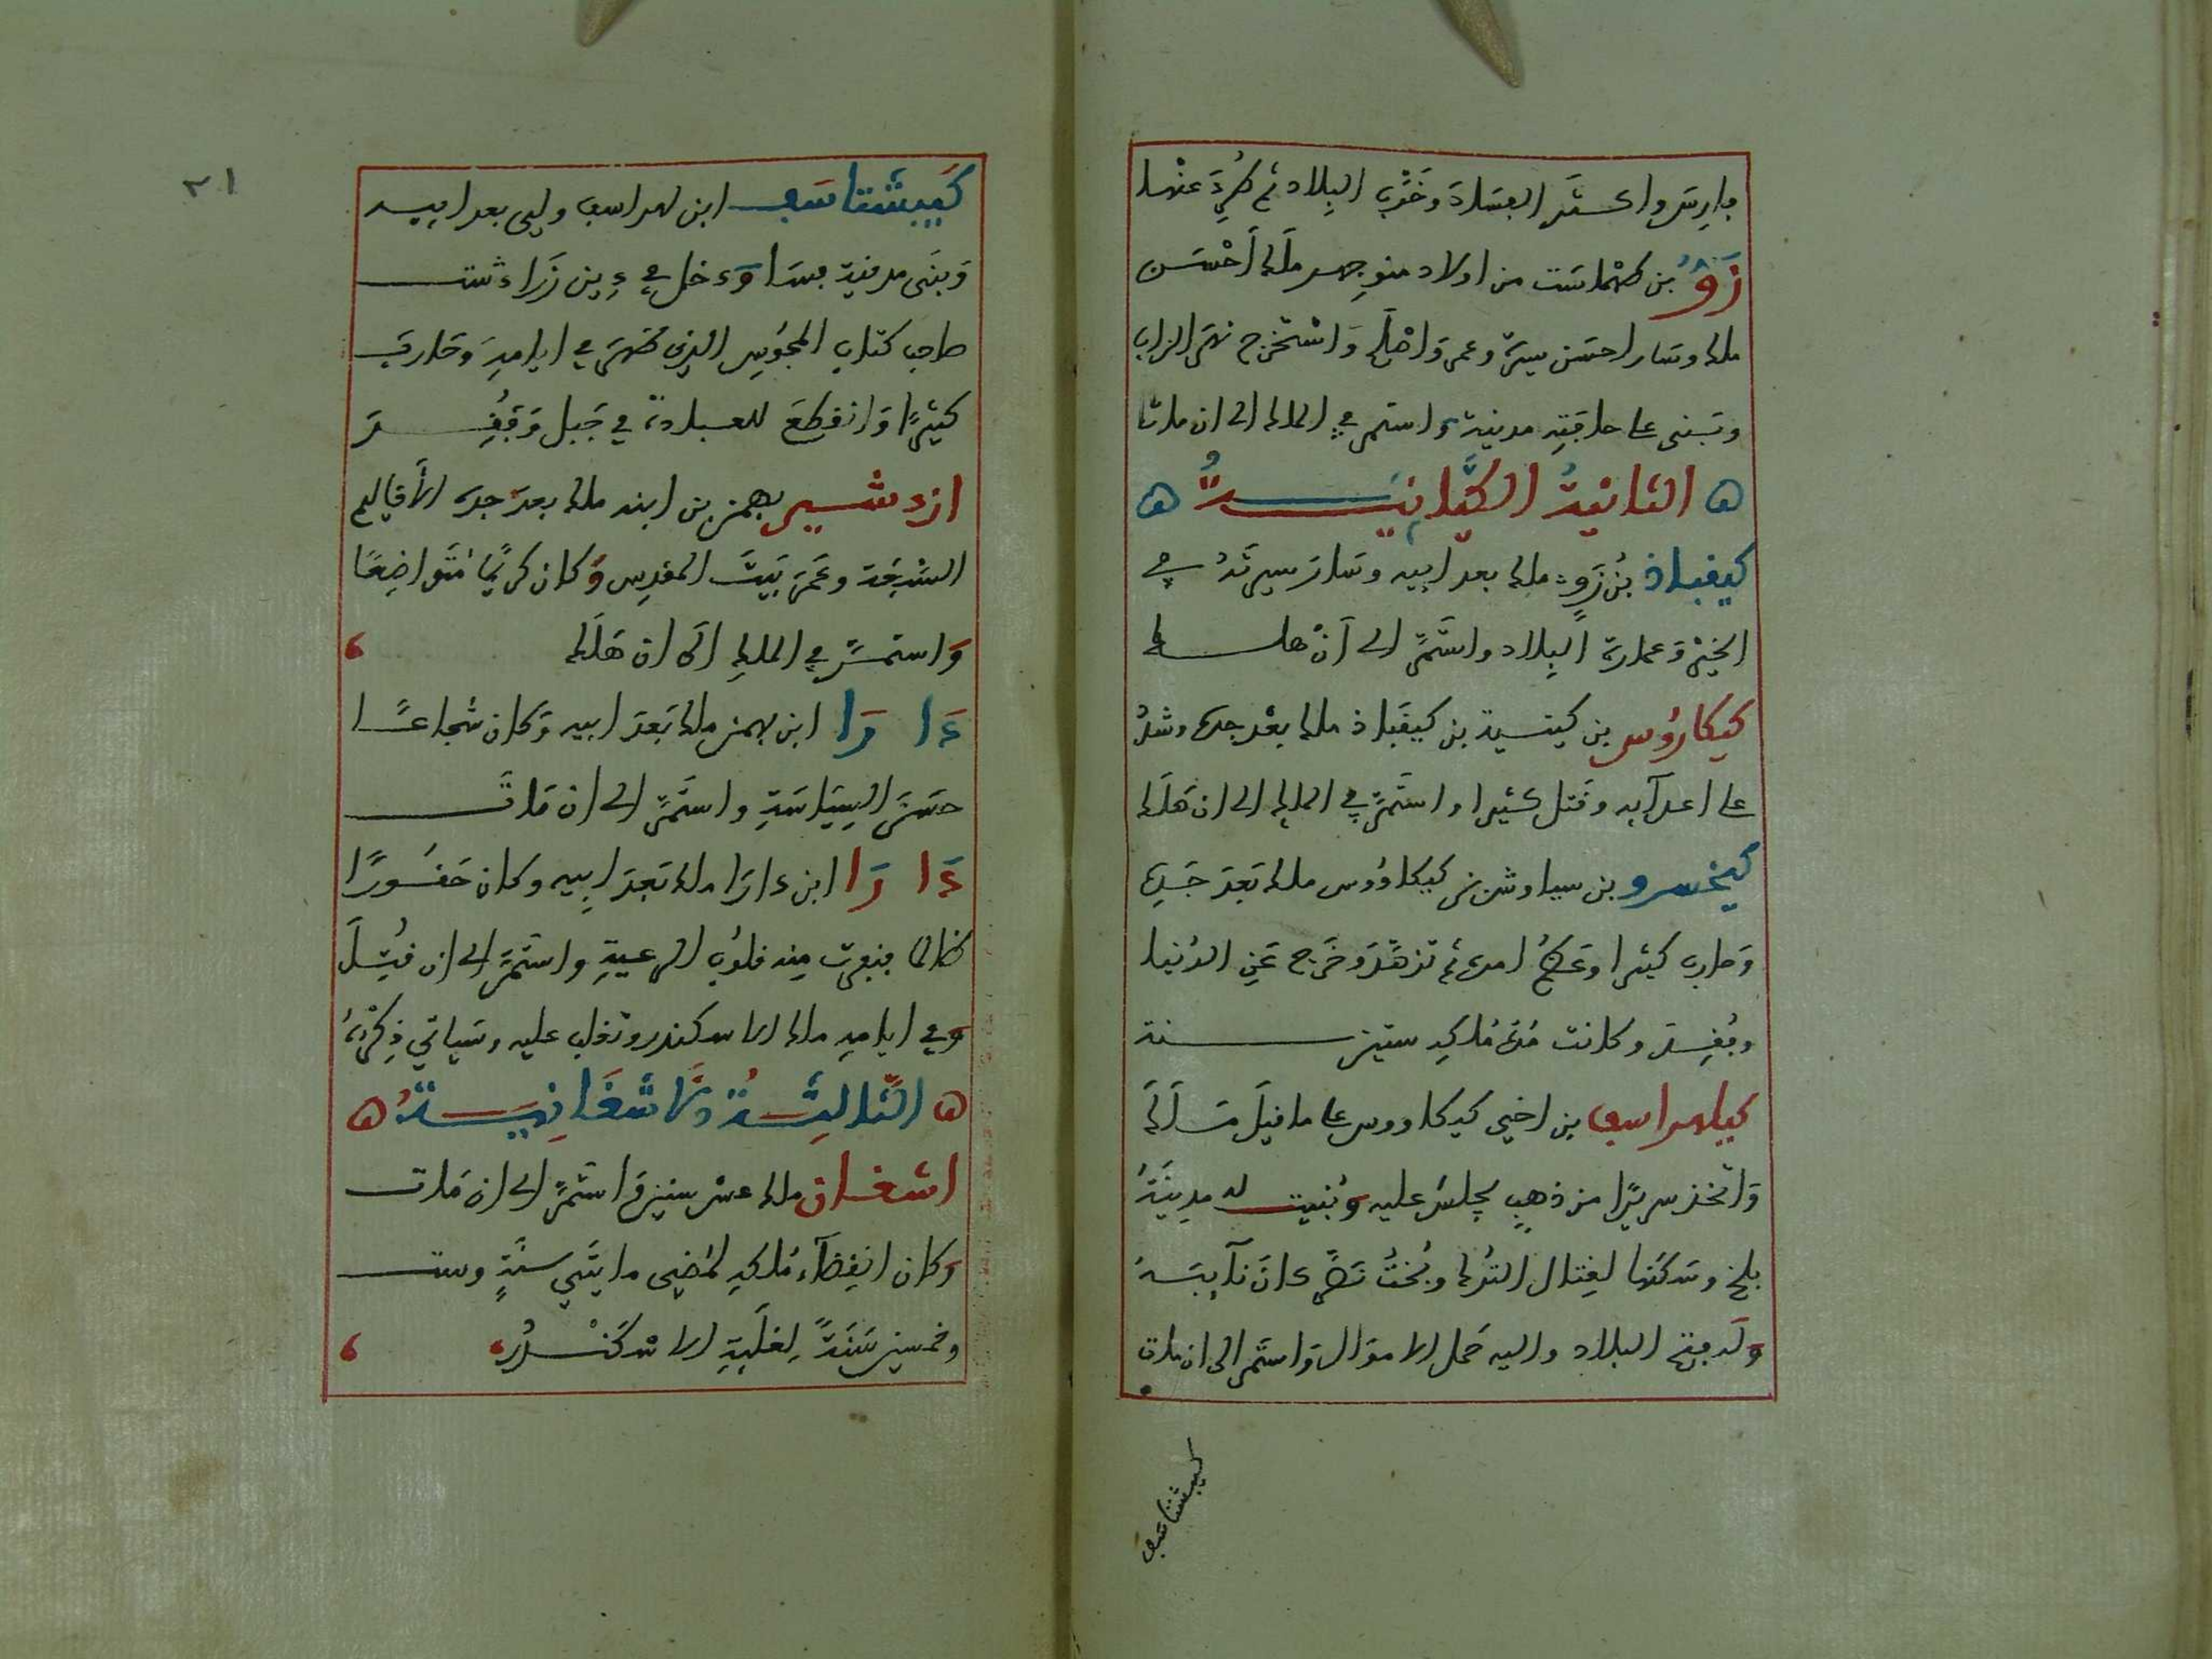 فارس واكثر الفساد وخرّب البلاد ثم طرد عنها
زوُّ بن طهماست من اولاد منوجهر ملك احسن
ملك وسار احسن سيرة وعمر واصلح واستخرج نهر الزاب
وبنى على حافته مدينة واستمر في الملك الى ان مات
ه الثانية الكيانية ه
كيقباذ بن زو ملك بعد ابيه وسار سيرته في
الخير وعمارة البلاد واستمر الى ان هلك
كيكاوُس بن كينسية بن كيقباذ ملك بعد جده وشد
على اعدآيه وقتل كثيرا واستمر في الملك الى ان هلك
كيخسرو بن سياوش بن كيكاوُوس ملك بعد جده
وحارب كثيرا وعظم امره ثم تزهد وخرج عن الدنيا
وفُقِد وكانت مدة ملكه ستين سنة
كيلهراسف بن اخي كيكاووس على ما قيل ملك
واتخذ سريرا من ذهب يجلس عليه وبُنيت له مدينة
بلخ وسكنها لقتال الترك وبُخت نصر كان نآيبه
وله فتح البلاد واليه حمل الاموال واستمر الى ان مات
كيبشتاسف
٢١
كيبشتاسف ابن لهراسف ولي بعد ابيه
وبنى مدينة فسا ودخل في دين زرادشت
صاحب كتاب المجوس الذي ظهر في ايامه وحارب
كثيرًا وانقطع للعبادة في جبل وفُقِد
ازدشير بهمن بن ابنه ملك بعد جده الأقاليم
السبعة وعمر بيت المقدس وكان كريمًا متواضعًا
واستمر في الملك الى ان هلك
دَارَا ابن بهمن ملك بعد ابيه وكان شجاعًا
حسن السياسة واستمر الى ان مات
دَارَا ابن دارا ملك بعد ابيه وكان حقودًا
ظالما فنفرت منه قلوب الرعية واستمر الى ان قُتِل
وفي ايامه ملك الاسكندر وتغلب عليه وسياتي ذكره
ه الثالثة الاشغانية ه
اشغان ملك عشر سنين واستمر الى ان مات
وكان انقضآء ملكه لمضي مايتي سنة وست
وخمسين سنة لغلبة الاسكندر